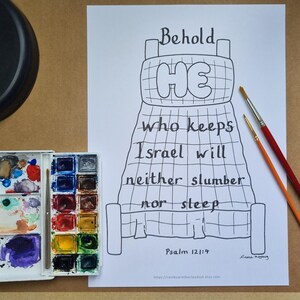 Behold
HE
who keeps
Israel will
neither slumber
nor sleep
Psalm 121:4